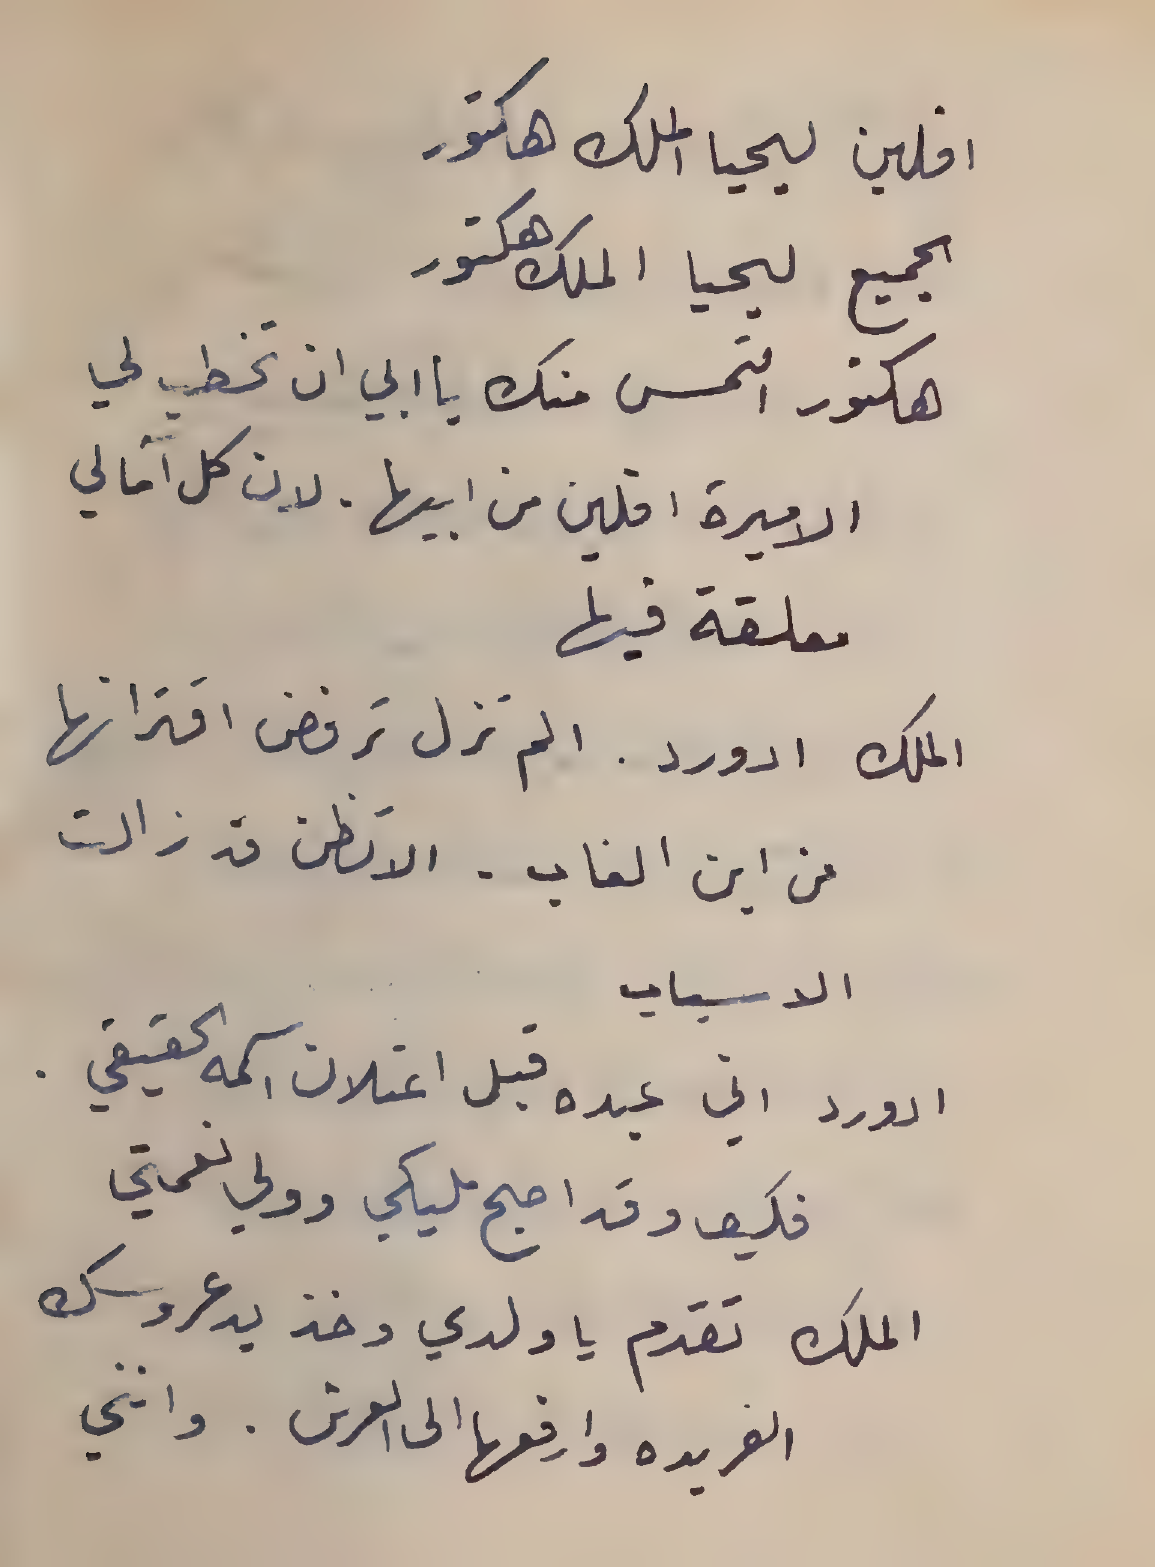 افلين ليحيا الملك هاكتور
الجميع ليحيا الملك هكتور
هكتور التمس منك يا ابي ان تخطب لي
الاميرة افلين من ابيها . لان كل آمالي
معلقة فيها
الملك ادورد . الم تزل ترفض اقترانها
من ابن الغاب . الا تظن قد زالت
الاسباب
ادورد اني عبده قبل اعتلان اسمه الحقيقي .
فكيف وقد اصبح مليكي وولي نعمتي
الملك تقدم يا ولدي وخذ يد عروسك
الفريده وارفعها الى العرش . وانني